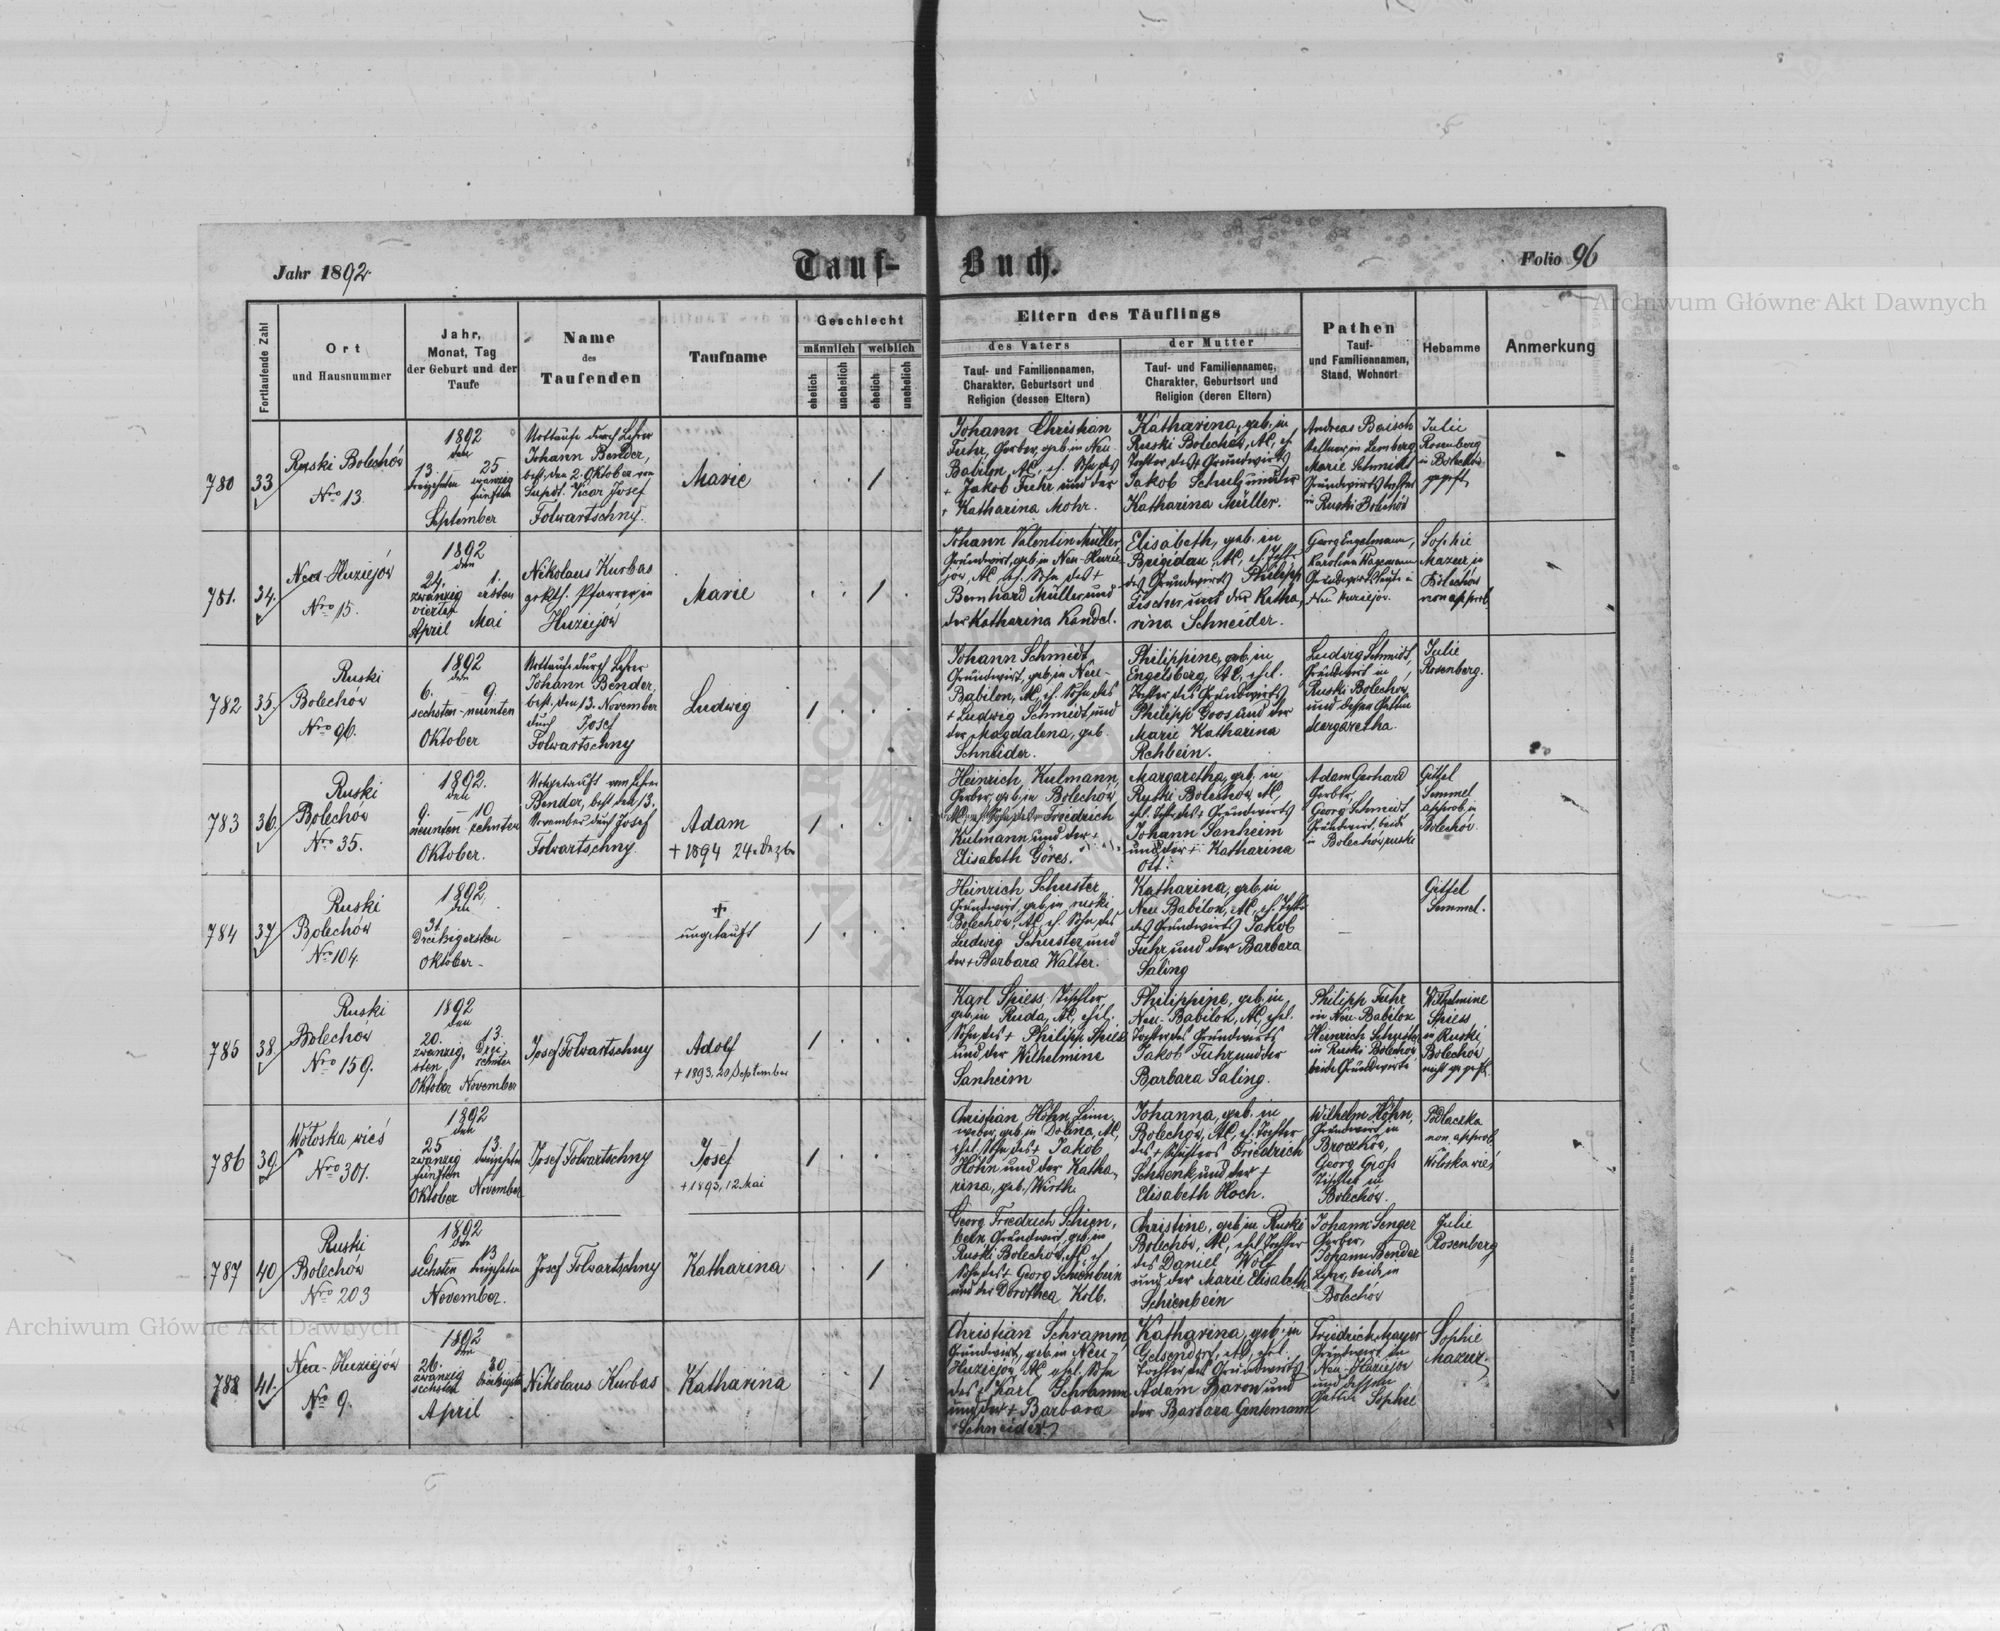 Jahr 1892
Tauf-Buch.
Folio 96
Archiwum Główne Akt Dawnych
Fortlaufende Zahl
Ort
und Hausnummer
Jahr,
Monat, Tag
der Geburt und der
Taufe
Name
des
Taufenden
Taufname
Geschlecht
männlich
weiblich
ehelich
unehelich
ehelich
unehelich
Eltern des Täuflings
des Vaters
Tauf- und Familiennamen,
Charakter, Geburtsort und
Religion (dessen Eltern)
der Mutter
Tauf- und Familiennamen,
Charakter, Geburtsort und
Religion (deren Eltern)
Pathen
Tauf-
und Familiennamen,
Stand, Wohnort
Hebamme
Anmerkung
780
33
Ruski Bolechów
Nro 13.
1892
den
13. 25
dreizehnten zwanzig
fünften
September
Nottaufe durch Lehrer
Johann Bender,
best. den 2. Oktober von
Supdt. Vicar Josef
Folwartschny.
Marie
1
Johann Christian
Fuhr, Gerber, geb. in Neu-
Babilon, AC, eh. Sohn des
+ Jakob Fuhr und der
+ Katharina Mohr.
Katharina, geb. in
Ruski Bolechów, AC, eh.
Tochter des + Grundwirts
Jakob Schulz und der
Katharina Müller.
Andreas Baisch
Kellner in Lemberg
Marie Schmidt
Grundwirtstochter
in Ruski Bolechów
Julie
Rosenberg
in Bolechów
gepr.
781.
34.
Neu-Huziejów
Nro 15.
1892
den
24. 1.
zwanzig ersten
vierten
April Mai
Nikolaus Kurbas
gr. kth. Pfarrer in
Huziejów
Marie
1
Johann Valentin Müller
Grundwirt, geb. in Neu-Huzie
jów, AC, eh. Sohn des +
Bernhard Müller und
der Katharina Kandel.
Elisabeth, geb. in
Brigidau, AC, eh. Tochter
des Grundwirts Philipp
Fischer und der Katha,
rina Schneider.
Georg Engelmann,
Karoline Wagemann
Grundwirtsleute in
Neu Huziejów.
Sophie
Mazur in
Bolechów
non approb.
782
35.
Ruski
Bolechów
Nro 96.
1892
den
6. – 9.
sechsten – neunten
Oktober
Nottaufe durch Lehrer
Johann Bender,
best. den 13. November
durch Josef
Folwartschny
Ludwig
1
Johann Schmidt,
Grundwirt, geb. in Neu-
Babilon, AC, eh. Sohn des
+ Ludwig Schmidt und
der Magdalena, geb.
Schneider.
Philippine, geb. in
Engelsberg, AC, ehel.
Tochter des Grundwirts
Philipp Goos und der
Marie Katharina
Rehbein.
Ludwig Schmidt,
Grundwirt in
Ruski Bolechów,
und dessen Gattin
Margaretha.
Julie
Rosenberg.
783
36.
Ruski
Bolechów
Nro 35.
1892.
den
9. 10.
neunten zehnten
Oktober.
Notgetauft vom Lehrer
Bender, best. den 13.
November durch Josef
Folwartschny.
Adam
+ 1894 24. Dezb.
1
Heinrich Kulmann,
Gerber, geb. in Bolechów,
AC, eh. Sohn des Friedrich
Kulmann und der +
Elisabeth Göres.
Margaretha, geb. in
Ruski Bolechów, AC,
ehl. Tocht. des + Grundwirts
Johann Sanheim
und der + Katharina
Ott.
Adam Gerhard
Gerber,
Georg Schmidt,
Grundwirt, beide
in Bolechów ruski
Gittel
Semmel
approb. in
Bolechów.
784
37
Ruski
Bolechów
Nro 104
1892
den
31.
Dreißigersten
Oktober –
+
ungetauft
1
Heinrich Schuster
Grundwirt, geb. in ruski
Bolechów, AC, eh. Sohn des
Ludwig Schuster und
der + Barbara Walter.
Katharina, geb. in
Neu Babilon, AC, eh. Tochter
des Grundwirts Jakob
Fuhr und der Barbara
Saling
Gittel
Semmel.
785
38.
Ruski
Bolechów
Nro 159.
1892
den
20. 13.
zwanzig, drei,
sten zehnten
Oktober November
Josef Folwartschny
Adolf
+ 1893, 20 September
1
Karl Spiess, Tischler
geb. in Ruda, AC, ehel.
Sohn des + Philipp Spiess
und der Wilhelmine
Sanheim
Philippine, geb. in
Neu-Babilon, AC, ehel.
Tochter des Grundwirts
Jakob Fuhr und der
Barbara Saling.
Philipp Fuhr
in Neu-Babilon
Heinrich Schuster
in Ruski Bolechów
beide Grundwirte
Wilhelmine
Spiess
in Ruski
Bolechów
nicht gepr.
786
39.
Wołoska wieś
Nro 301.
1892
den
25 13.
zwanzig dreizehnten
fünften
Oktober November
Josef Folwartschny
Josef
+ 1893, 12. Mai
1
Christian Höhn, Leine,
weber, geb. in Dolina, AC,
ehel. Sohn des + Jakob
Höhn und der Katha,
rina, geb. Wirth.
Johanna, geb. in
Bolechów, AC, eh. Tochter
des + Küsters Friedrich
Schwenk und der +
Elisabeth Hoch.
Wilhelm Höhn,
Grundwirt in
Broczków,
Georg Groß
Tischler in
Bolechów.
Podlaczka
non approb.
in
Wołoska wieś
787
40
Ruski
Bolechów
Nro 203
1892
den
6 13
sechsten dreizehnten
November.
Josef Folwartschny
Katharina
1
Georg Friedrich Schien,
bein, Grundwirt, geb. in
Ruski Bolechów, AC, eh.
Sohn des + Georg Schienbein
und der Dorothea Kolb.
Christine, geb. in Ruski
Bolechów, AC, ehel. Tochter
des Daniel Wolf
und der Marie Elisabeth
Schienbein
Johann Senger
Gerber,
Johann Bender
Lehrer, beide in
Bolechów
Julie
Rosenberg
788
41.
Neu-Huziejów
Nro 9.
1892
den
26. 30
zwanzig dreißigsten
sechsten
April
Nikolaus Kurbas
Katharina
1
Christian Schramm,
Grundwirt, geb. in Neu-
Huziejów, AC, ehel. Sohn
des + Karl Schramm
und der + Barbara
Schneider.
Katharina, geb. in
Gelsendorf, AC, ehel.
Tochter des Grundwirts
Adam Baron und
der Barbara Gentemann
Friedrich Mayer
Grundwirt in
Neu-Huziejów
und dessen
Gattin Sophie
Sophie
Mazur.
Archiwum Główne Akt Dawnych